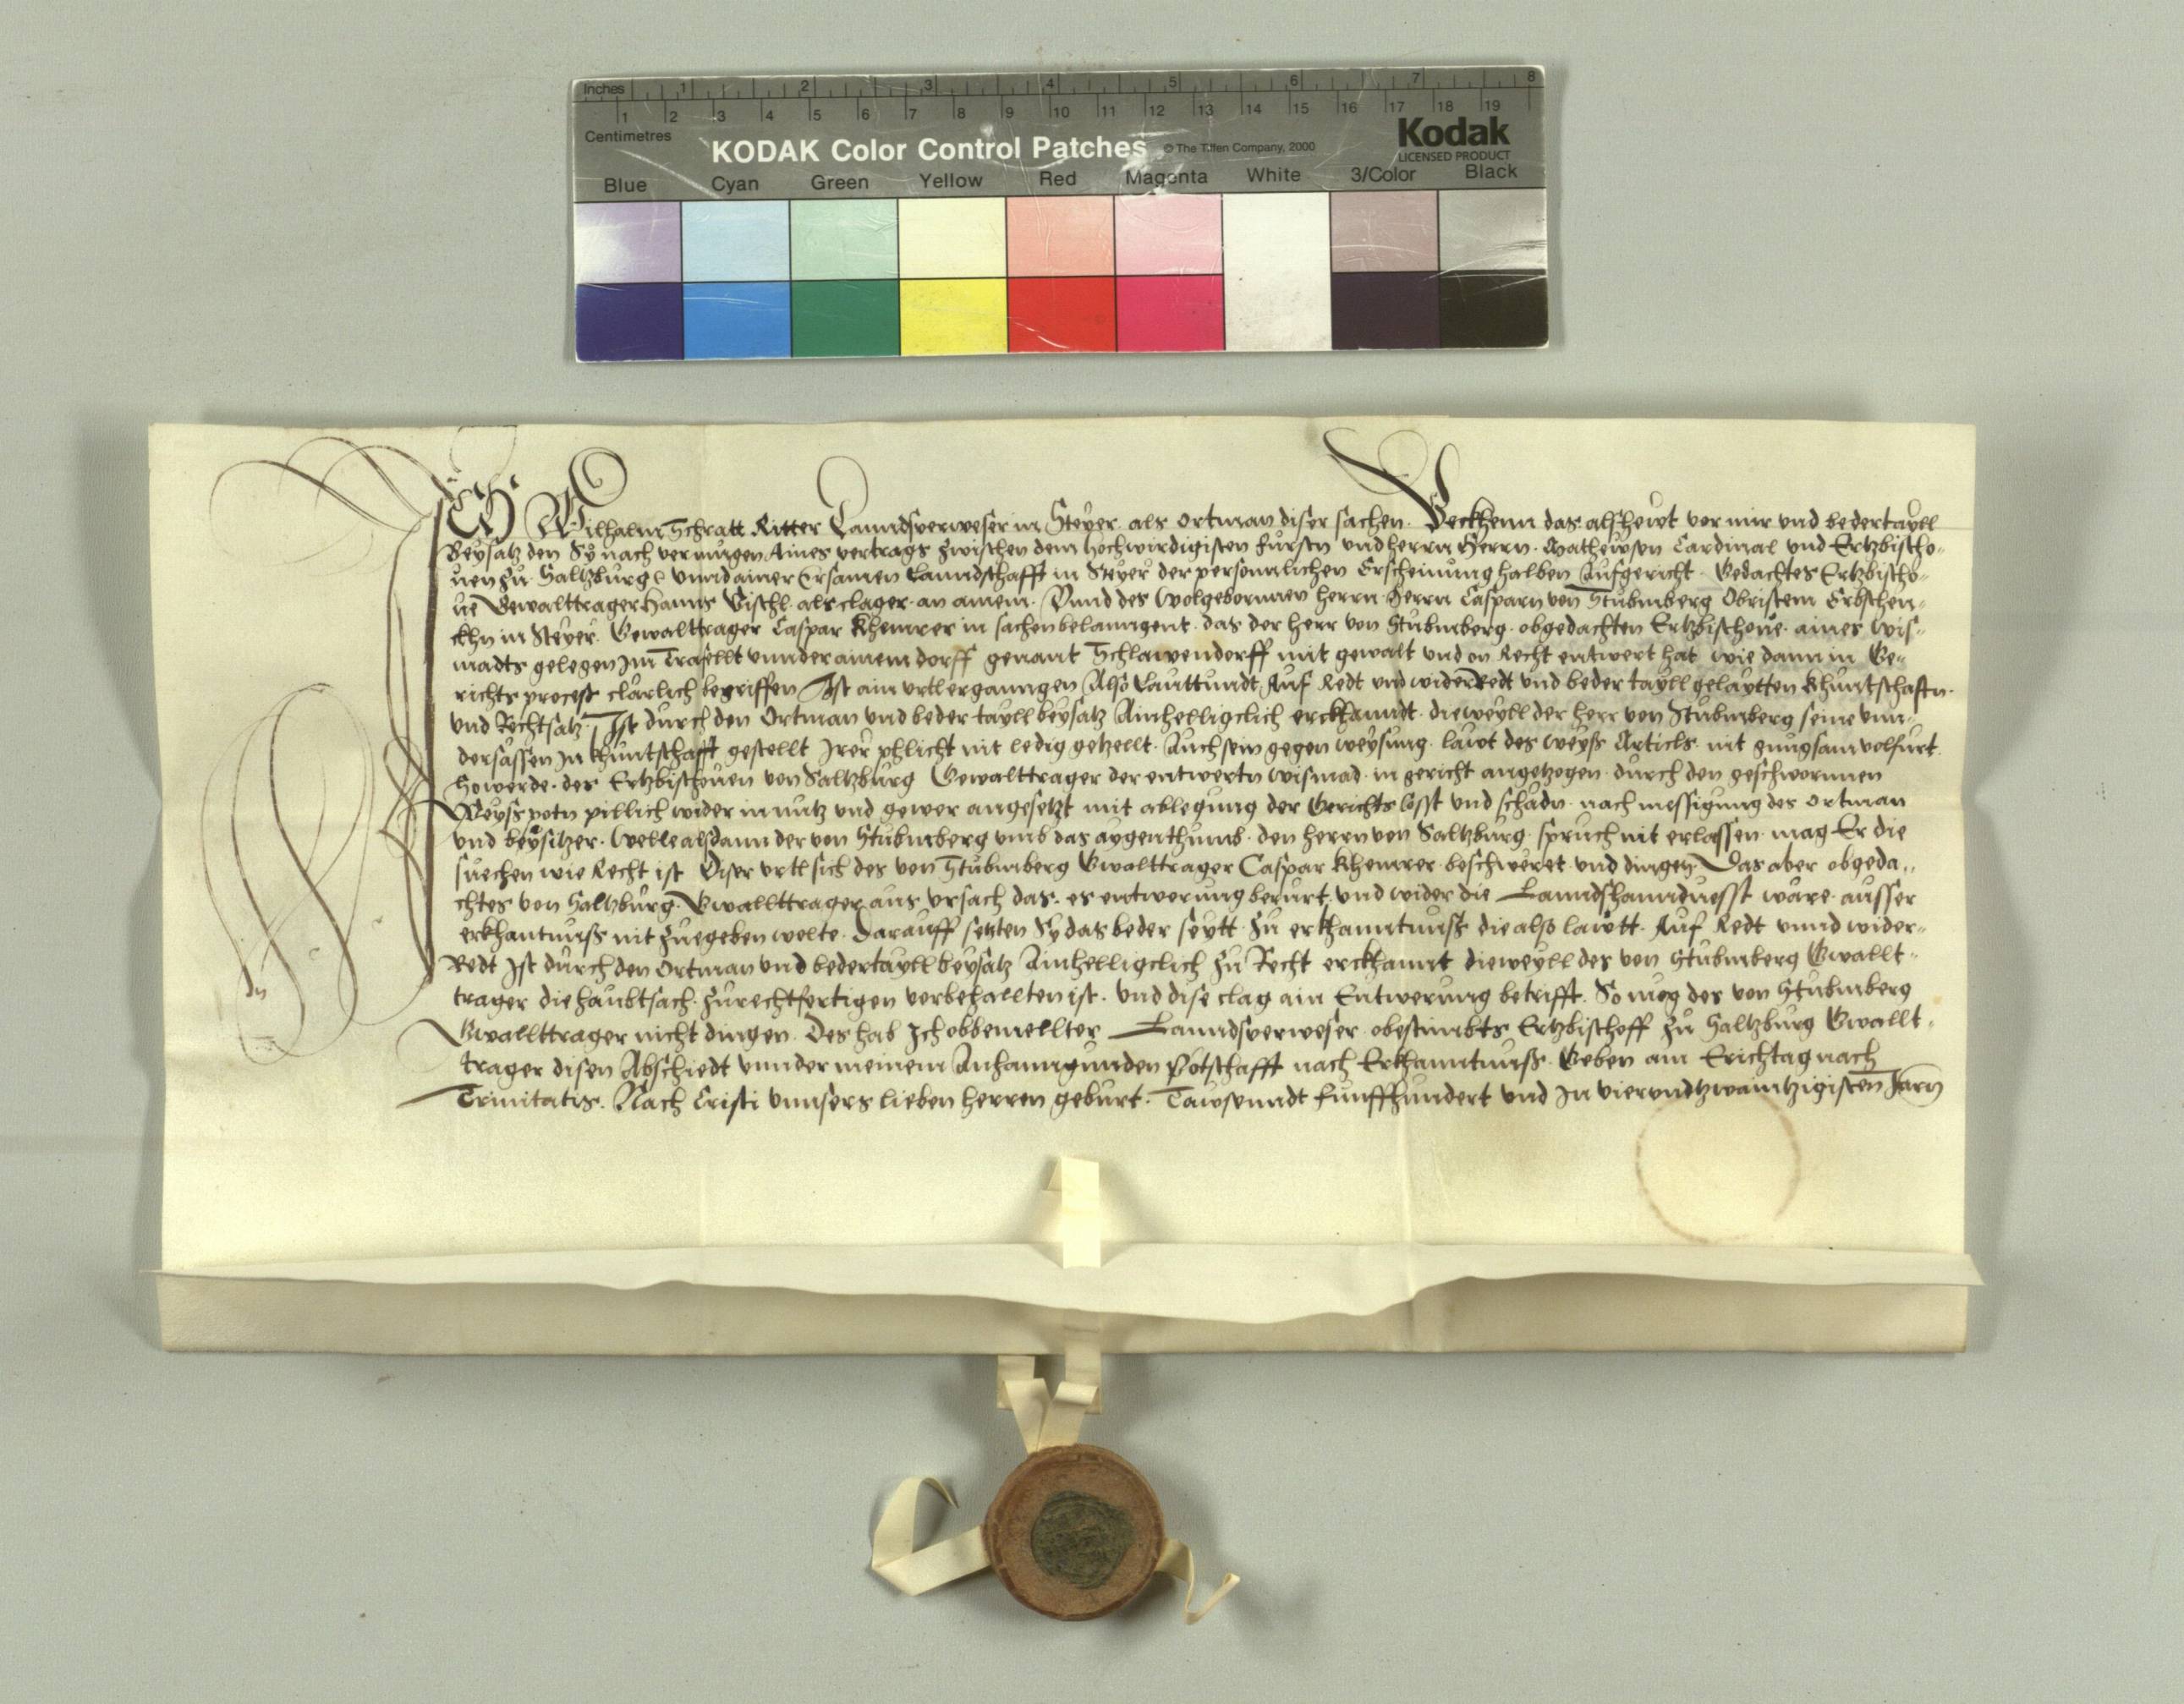 Inches 1 2 3 4 5 6 7 8
1 2 3 4 5 6 7 8 9 10 11 12 13 14 15 16 17 18 19
Centimetres
KODAK Color Control Patches © The Tiffen Company, 2000 Kodak
LICENSED PRODUCT
Blue Cyan Green Yellow Red Magenta White 3/Color Black
Ich Wilhalm Schratt Ritter Lanndsverweser in Steyer als Ortman diser sachen. Beckhenn das als hewt vor mir und bedertayll
Beysatz den Sy nach vermugen Aines vertrags zwischen dem hochwirdigisten fursten und herrn Herrn. Mathewsen Cardinal und Ertzbischo-
uen zu Saltzburg unnd ainer Ersamen Lanndschafft in Steyer der personnlichen Erscheinung halben Aufgericht. Gedachtes Ertzbischo-
ue Gewalttrager Hanns Vischl als clager an ainem. Vnnd des Wolgebornnen herrn Herrn Casparn von Stubmberg Obristem Erbschen-
ckhn in Steyer. Gewalttrager Caspar Khemrer in sachen belanngent. das der herr von Stubmberg. obgedachten Ertzbischoue. aines Wis-
madts gelegen Im Trafellt vnnder ainem dorff genant Schlawendorff mit gewalt und on Recht entwert hat wie dann in Ge-
richts process clarlich begriffen Ist ain vrtl erganngen Also Lauttundt Auf Redt und widerRedt und beder tayll gelaytten Khuntschaftn.
und Rechtsatz. Ist durch den Ortman und beder tayll beysatz Ainhelligclich erckhanndt. dieweyll der herr von Stubmberg seine vnn-
dersassen In Khuntschafft gestellt Irer phlicht nit ledig getzellt. Auch sein gegen weysung. lawt des weyss Articls. nit gnugsam volfurt.
So werde. des Ertzbischouen von Saltzburg Gewalttrager der entwertn wismad. in gericht angetzogen durch den geschwornnen
Weyss potn pillich wider in nutz und gewer angesetzt mit ablegung der Gerichts losst und schadn. nach messigung des ortman
und beysitzer. Welle alsdann der von Stubmberg umb das aygenthumb. den herrn von Saltzburg. spruch nit erlassen. mag Er die
suechen wie Recht ist Diser vrtl sich des von Stubmberg Gwalttrager Caspar Khemrer beschweret und dingen Das aber obgeda-
chtes von Saltzburg. Gwallttrager aus vrsach das. es entwerung berurt. und wider die Lanndshanndvesst ware. ausser
erkhantnuss nit zuegeben welte. Darauff setzten Sy das beder seytt. zu erkhanntnuss die also lawtt. Auf Redt unnd wider-
Redt Ist durch den Ortman und bedertayll beysatz Ainhelligclich zu Recht erckhannt dieweyll des von Stubmberg Gwallt-
trager die haubtsach. zurechtfertigen vorbehallten ist. und dise clag ain Entwerung betrifft. So mog des von Stubmberg
Gwallttrager nicht dingen. Des hab Ich obbemellter Lanndsverweser obestimbts Ertzbischoff zu Saltzburg Gwallt-
trager disen Abschiedt vnnder meinem Anhanngunden Petschafft nach Erkhanntnuss. Geben am Erichtag nach
Trinitatis. Nach Cristi vnnsers lieben herren geburt. Tawsenndt funffhundert und In vierundtzwaintzigisten Jarn